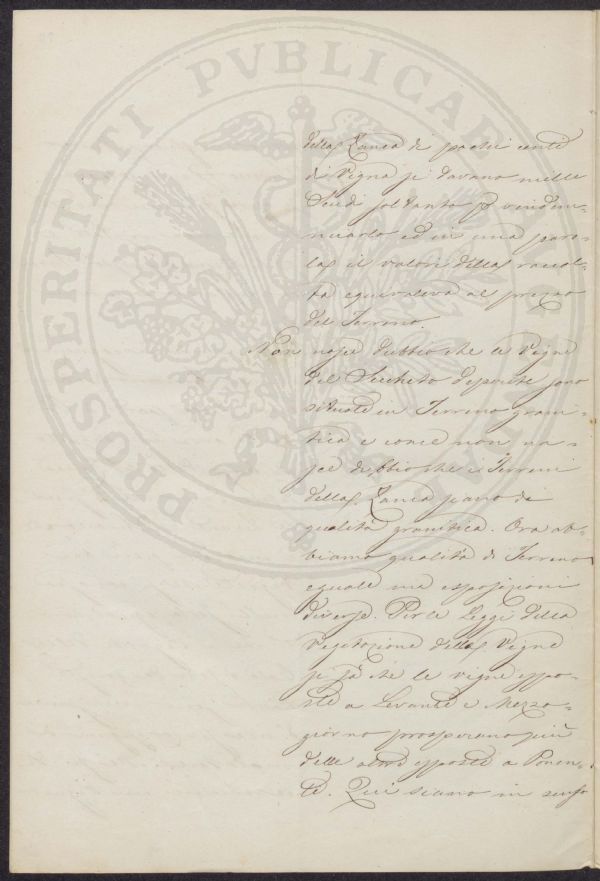 PROSPERITATI PVBLICAE
della Zanca di pochi cento
di Vigna si davano mille
Scudi soltanto p vindem-
miarlo ed in una paro-
la il valore della raccol-
ta equivaleva al prezzo
del Terreno.
Non nasce dubbio che le Vigne
del Seccheto deperite sono
situate in Terreno grani-
tico e come non na-
sce dubbio che i Terreni
della Zanca siano di
qualità granitica. Ora ab-
biamo qualità di Terreno
eguale ma esposizioni
diverse. Per le Leggi della
Vegetazione delle Vigne
si sà che le vigne espo-
ste a Levante e Mezzo-
giorno prosperano più
delle altre esposte a Ponen-
te. Qui siamo in senso